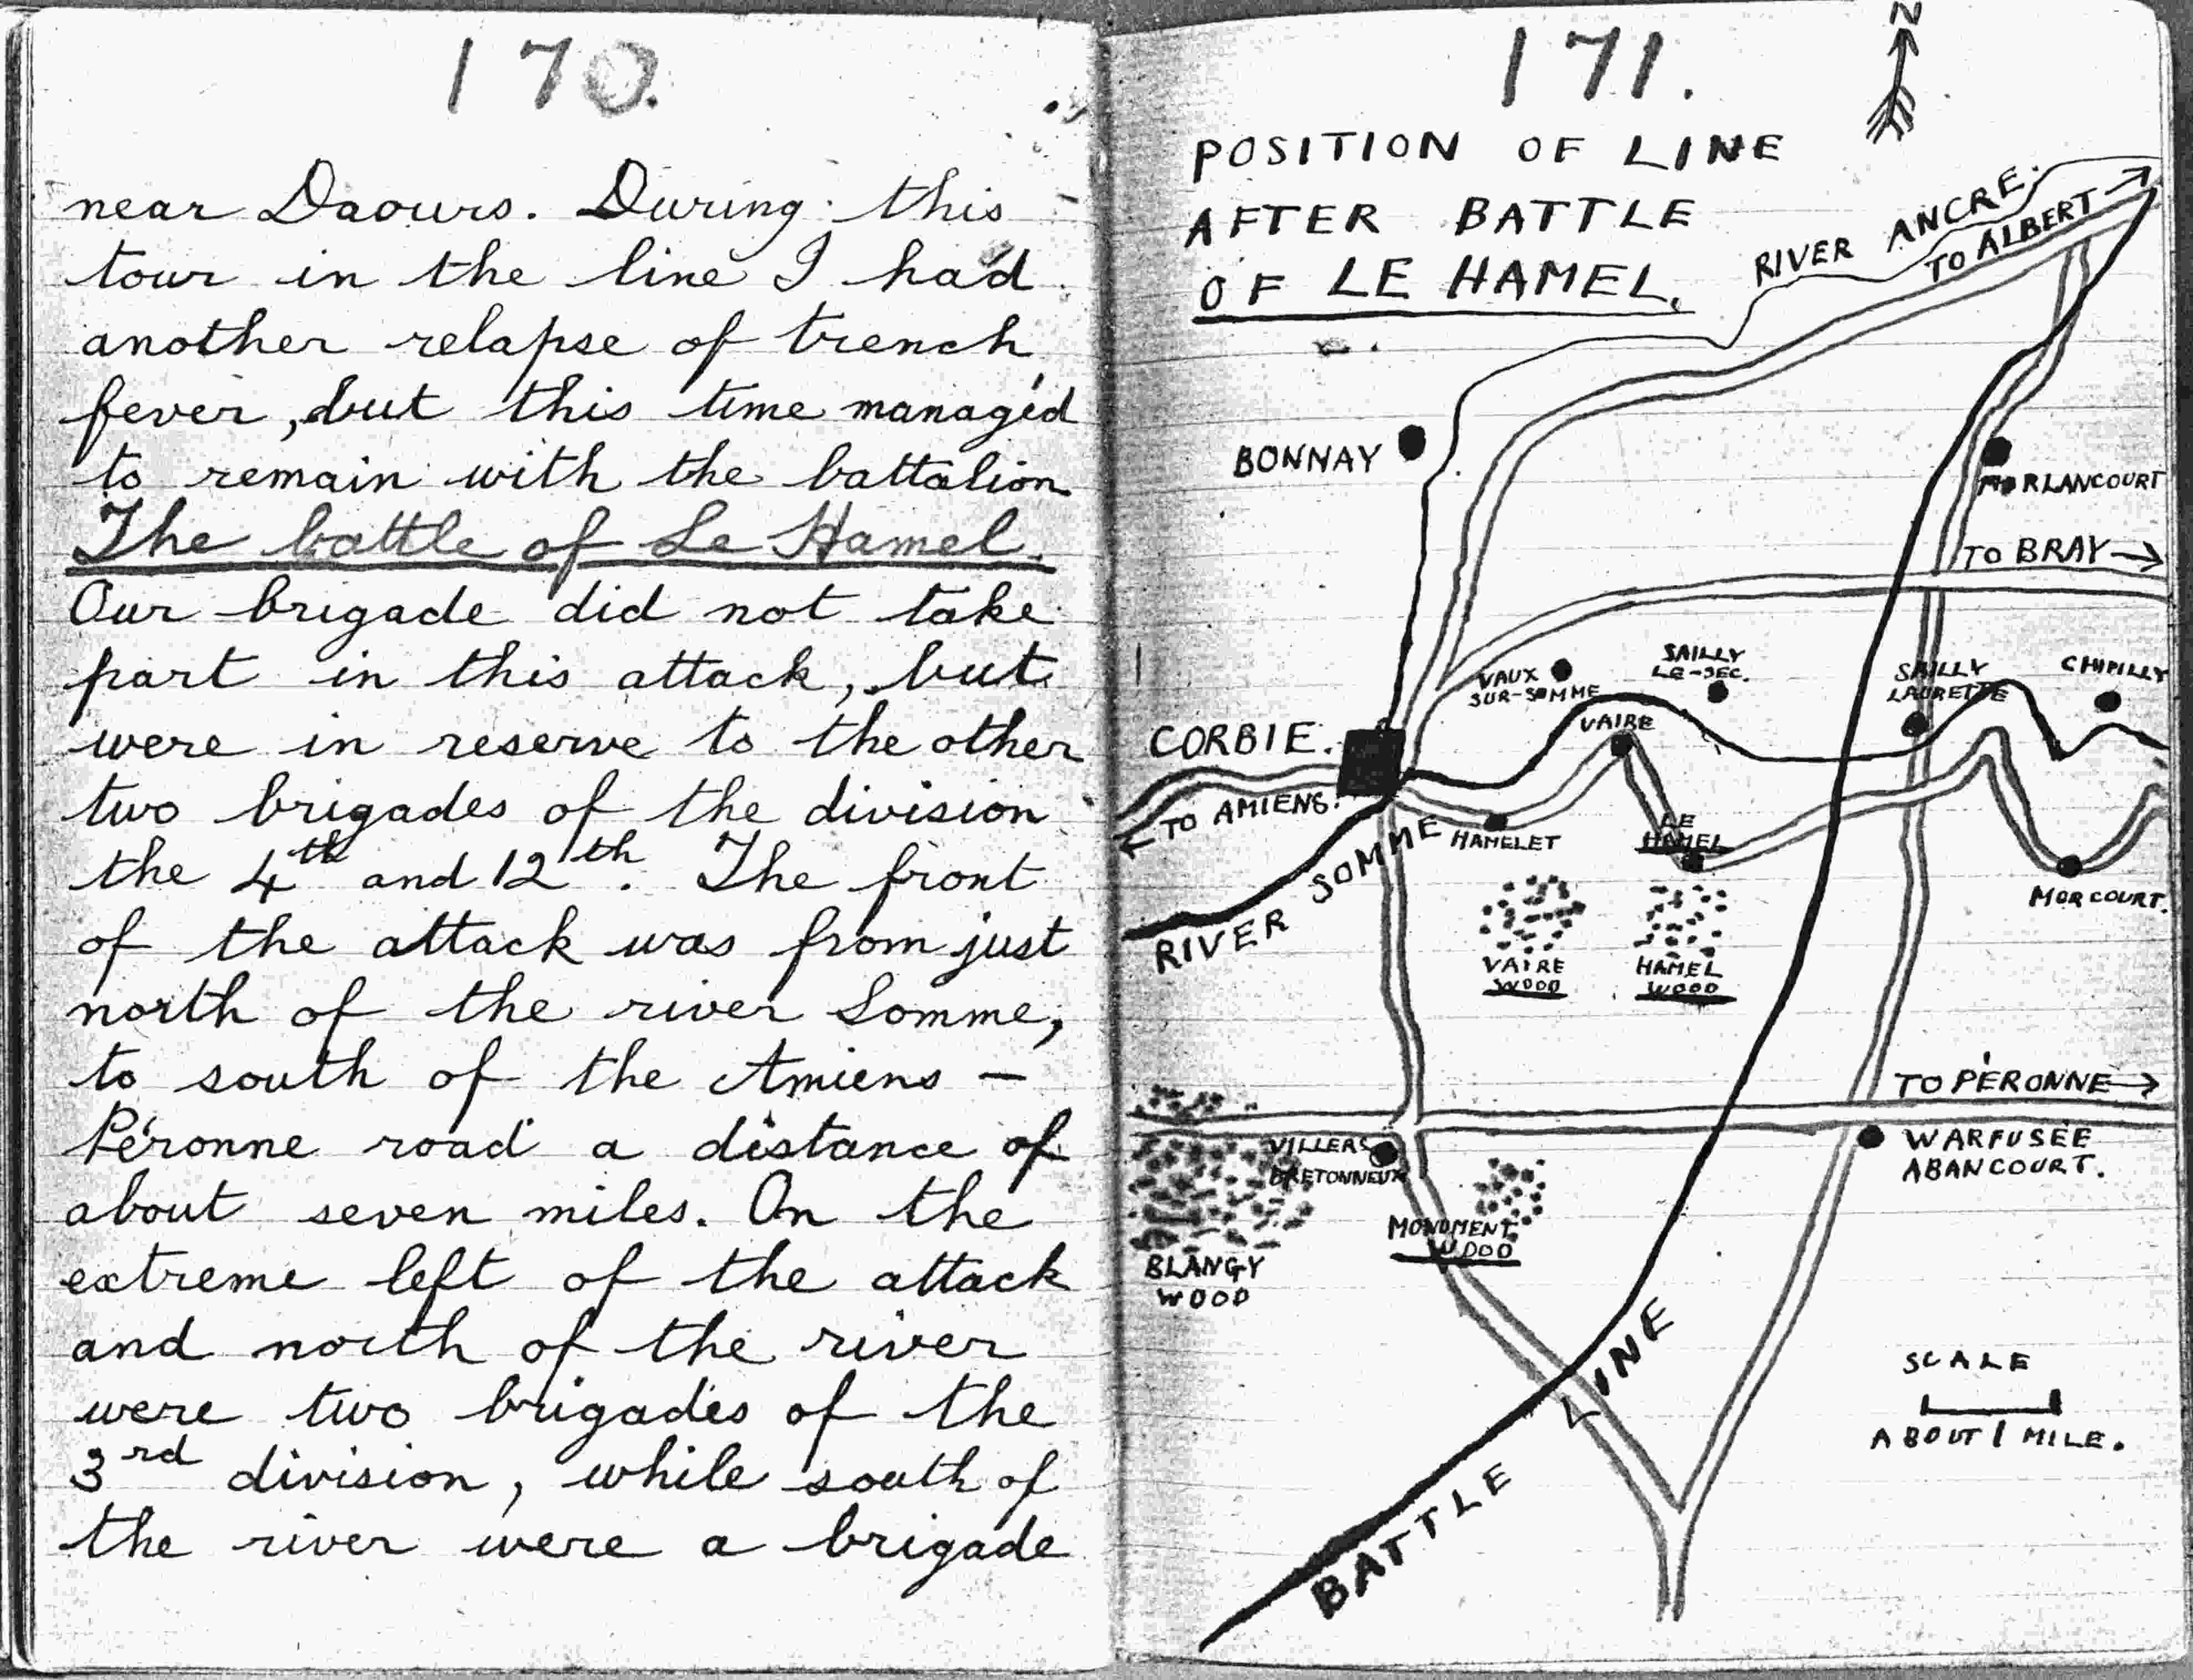 170.
near Daours. During this
tour in the line I had
another relapse of trench
fever, but this time managed
to remain with the battalion
The battle of Le Hamel.
Our brigade did not take
part in this attack, but
were in reserve to the other
two brigades of the division
the 4th and 12th. The front
of the attack was from just
north of the river Somme,
to south of the Amiens -
Péronne road a distance of
about seven miles. On the
extreme left of the attack
and north of the river
were two brigades of the
3rd division, while south of
the river were a brigade
171.
N
POSITION OF LINE
AFTER BATTLE
OF LE HAMEL.
RIVER ANCRE.
TO ALBERT
BONNAY
MORLANCOURT
TO BRAY
VAUX
SUR-SOMME
SAILLY
LE-SEC.
SAILLY
LAURETTE
CHIPILLY
VAIRE
CORBIE.
TO AMIENS.
HAMELET
LE
HAMEL
RIVER SOMME
MORCOURT.
VAIRE
WOOD
HAMEL
WOOD
TO PÉRONNE
VILLERS
BRETONNEUX
WARFUSÉE
ABANCOURT.
MONUMENT
WOOD
BLANGY
WOOD
BATTLE LINE
SCALE
ABOUT 1 MILE.